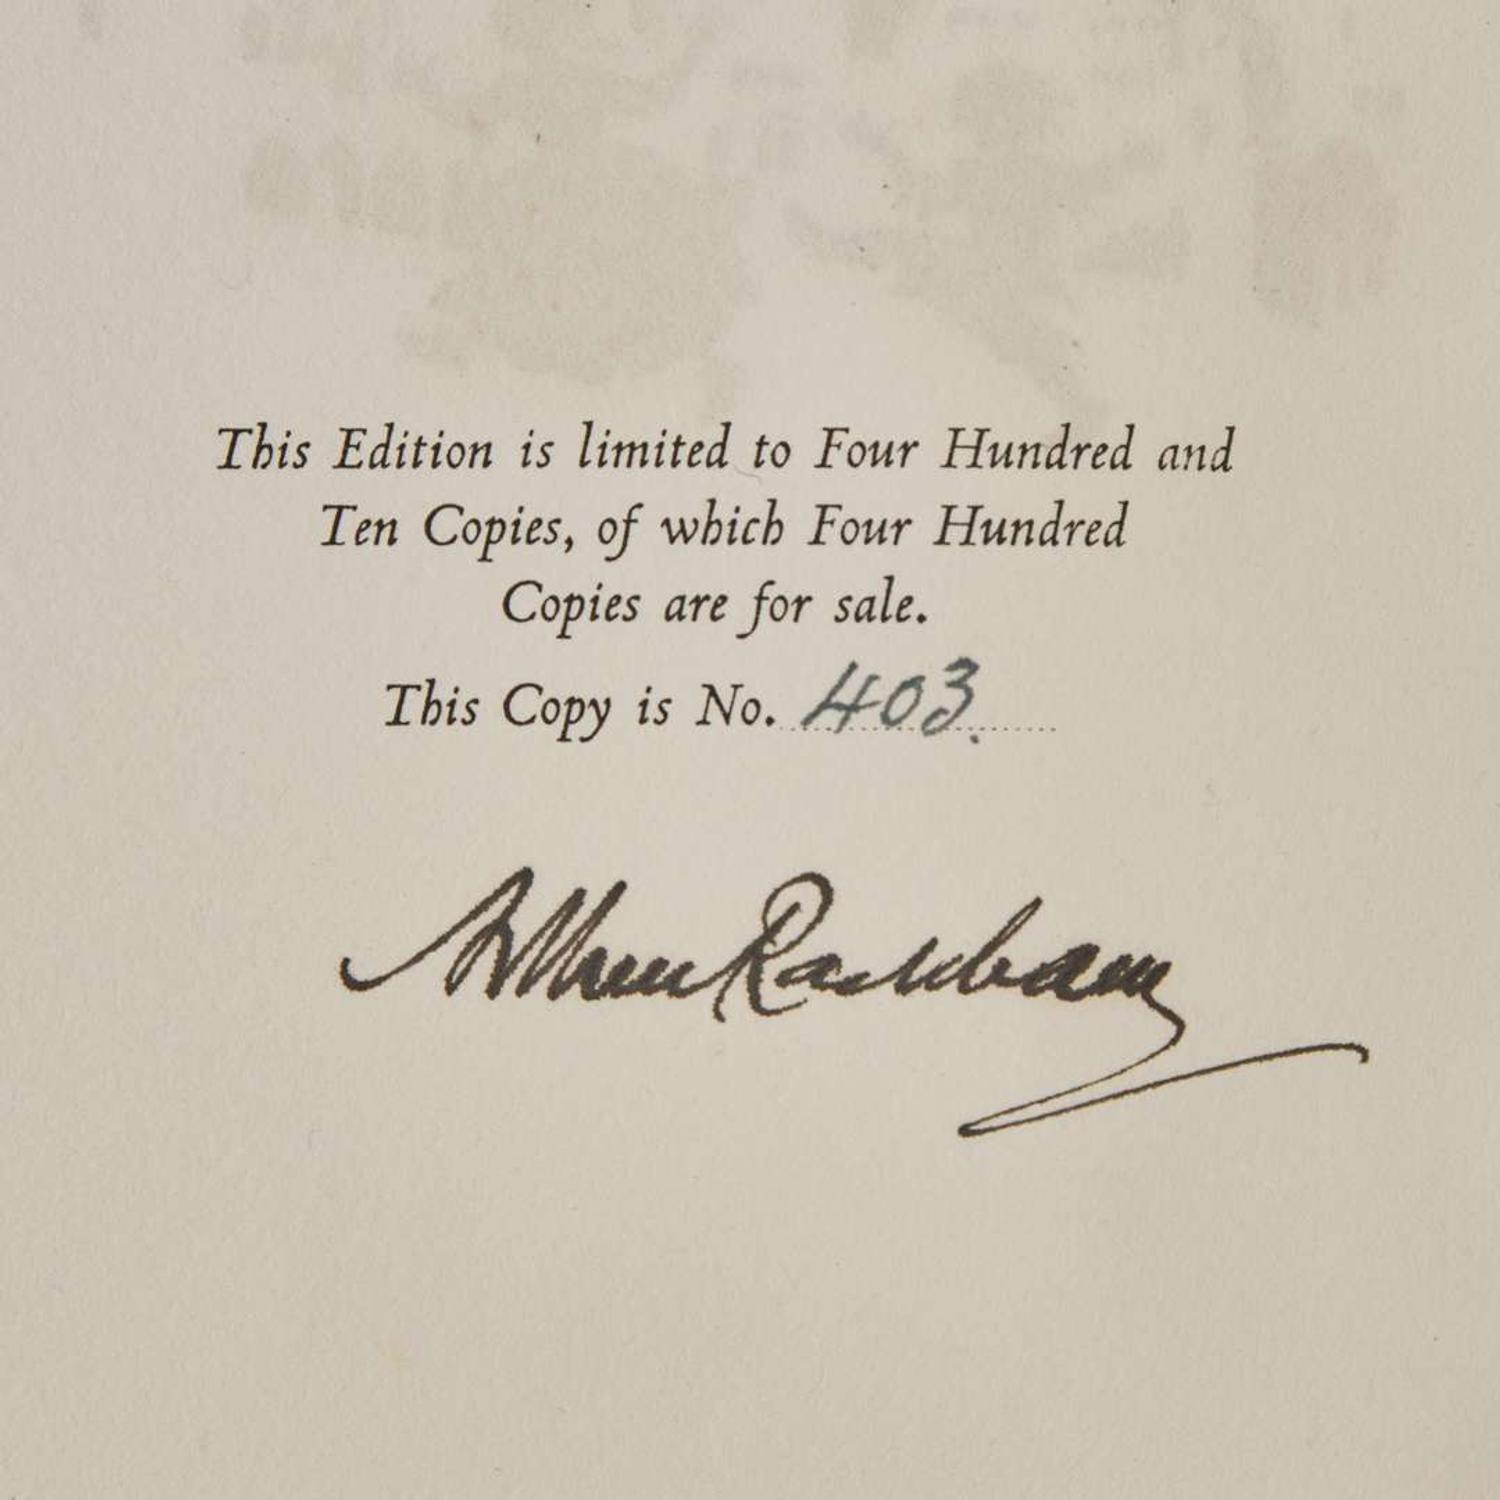 This Edition is limited to Four Hundred and
Ten Copies, of which Four Hundred
Copies are for sale.
This Copy is No. 403.
Arthur Rackham